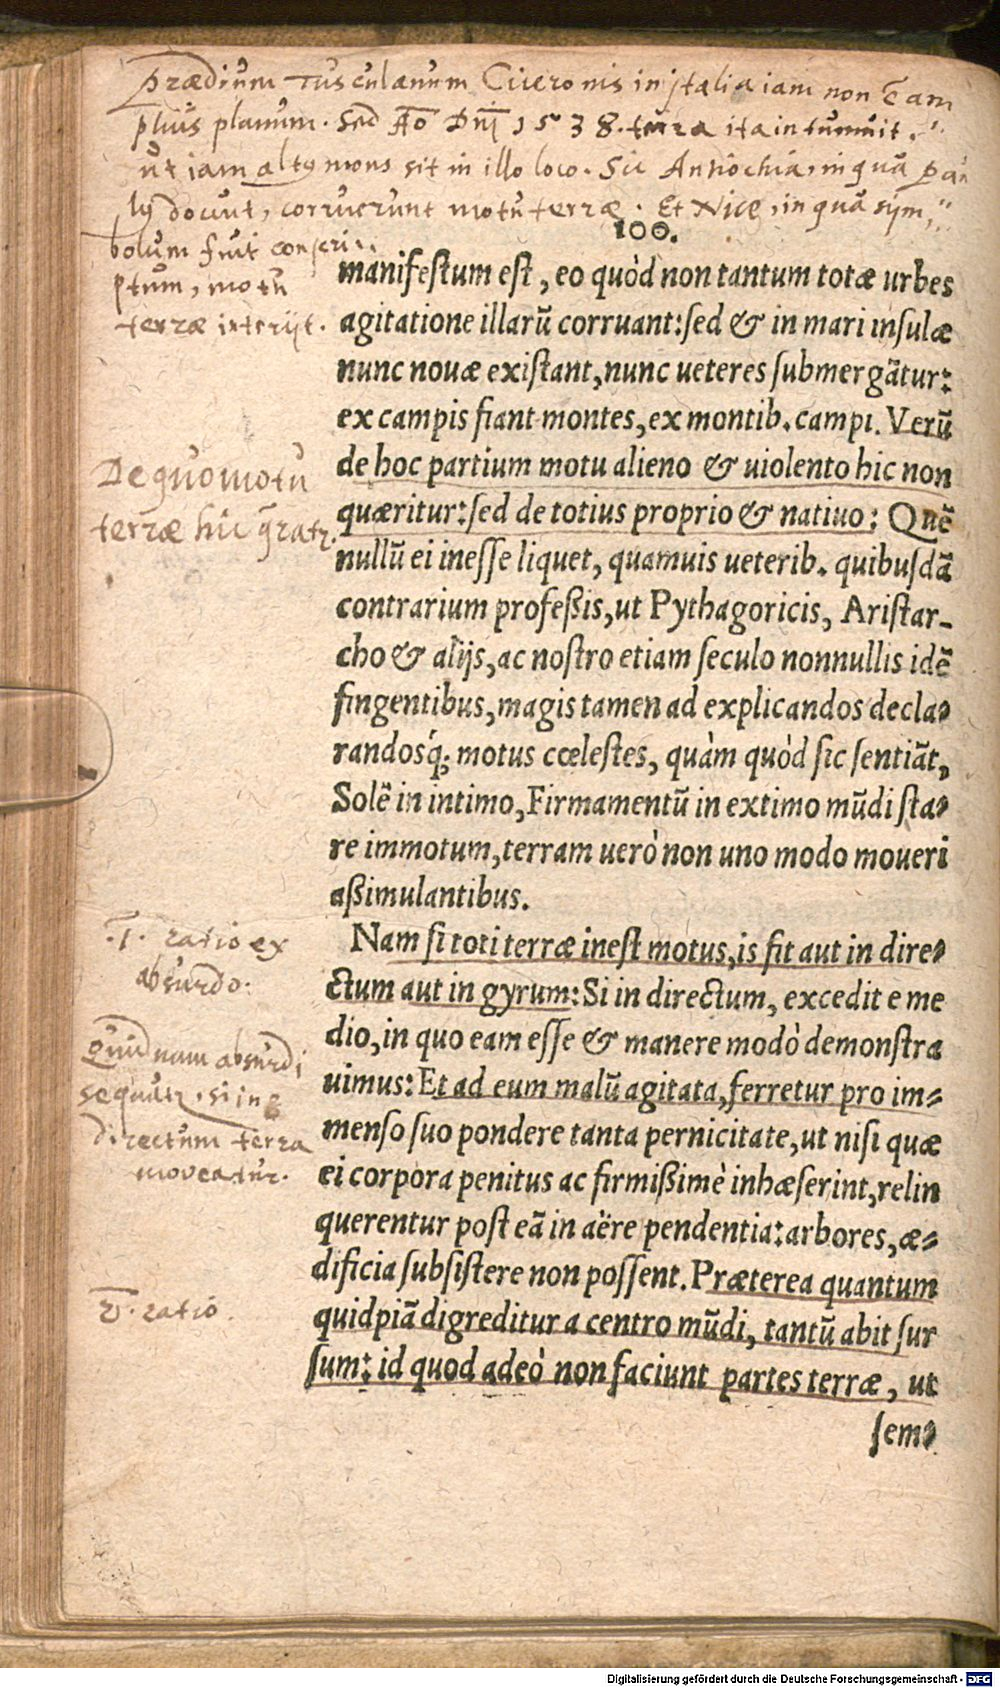 Prædium Tusculanum Ciceronis in Italia iam non ē am
plius planum. Sed Ao Dnj 1538. terra ita intumuit.
ut iam altꝰ mons sit in illo loco. Sic Antiochia, in qua Pau
lꝰ docuit, corruerunt motu terræ. Et Nice, in qua sym
bolum fuit conscri
ptum, motu
terræ interijt.
100.
manifestum est, eo quòd non tantum totæ urbes
agitatione illarū corruant: sed & in mari insulæ
nunc nouæ existant, nunc ueteres submergātur:
ex campis fiant montes, ex montib. campi. Verū
de hoc partium motu alieno & uiolento hic non
quæritur: sed de totius proprio & natiuo: Quē
De quo motu
terræ hic q̄ratr.
nullū ei inesse liquet, quamuis ueterib. quibusdā
contrarium profeßis, ut Pythagoricis, Aristar-
cho & alijs, ac nostro etiam seculo nonnullis idē
fingentibus, magis tamen ad explicandos decla-
randosq́; motus cœlestes, quàm quòd sic sentiāt,
Solē in intimo, Firmamentū in extimo mūdi sta-
re immotum, terram uerò non uno modo moueri
aßimulantibus.
Nam si toti terræ inest motus, is fit aut in dire-
ctum aut in gyrum: Si in directum, excedit e me
.1. ratio ex
absurdo.
dio, in quo eam esse & manere modò demonstra
uimus: Et ad eum malū agitata, ferretur pro im-
menso suo pondere tanta pernicitate, ut nisi quæ
ei corpora penitus ac firmißimè inhæserint, relin
Quid nam absurdi
sequatr, si in
directum terra
moveatur.
querentur post eā in aëre pendentia: arbores, æ-
dificia subsistere non possent. Præterea quantum
quidpiā digreditur a centro mūdi, tantū abit sur
sum: id quod adeò non faciunt partes terræ, ut
2. ratio.
sem-
Digitalisierung gefördert durch die Deutsche Forschungsgemeinschaft - DFG